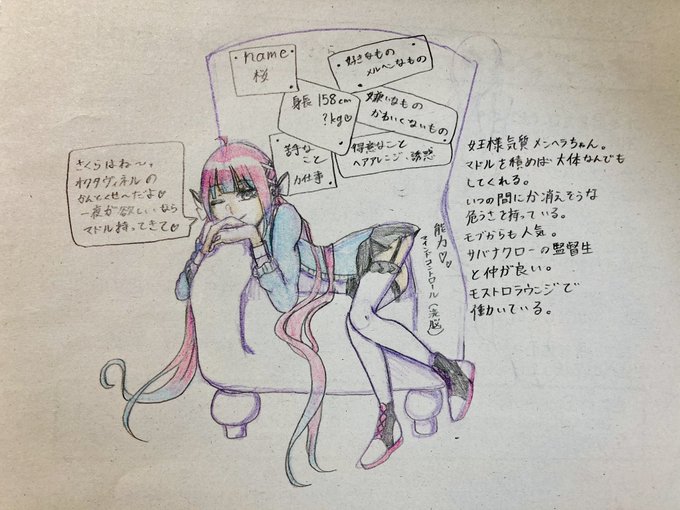 name
桜
好きなもの
メルヘンなもの
身長 158cm
?kg♡
嫌いなもの
かわいくないもの
苦手な
こと
力仕事
得意なこと
ヘアアレンジ、誘惑
さくらはね〜、
オクタヴィネルの
かんとくせーだよ♡
一夜が欲しいなら
マドル持ってきて♡
能力♡♡
マインドコントロール(洗脳)
女王様気質メンヘラちゃん。
マドルを積めば大体なんでも
してくれる。
いつの間にか消えそうな
危うさを持っている。
モブからも人気。
サバナクローの監督生
と仲が良い。
モストロラウンジで
働いている。